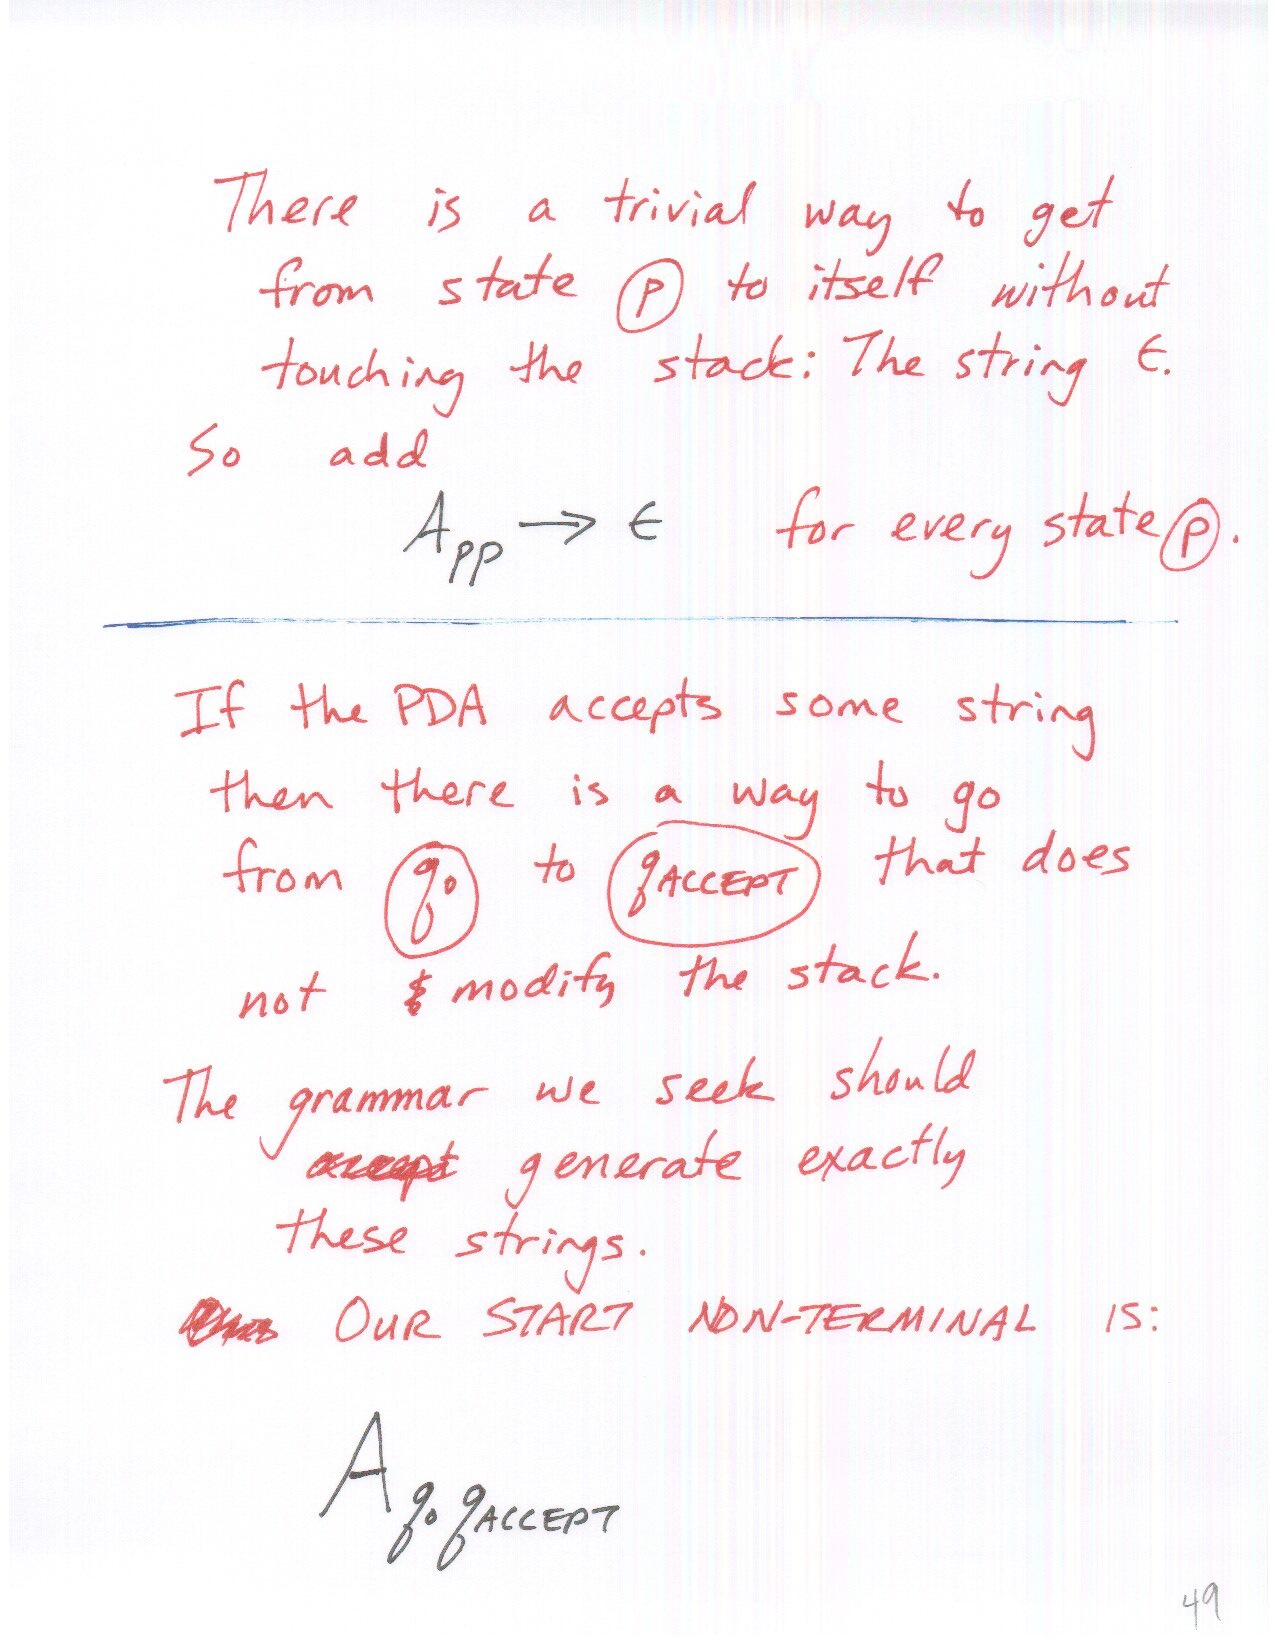 There is a trivial way to get
from state p to itself without
touching the stack: The string ϵ.
So add
A_pp → ϵ for every state p.
If the PDA accepts some string
then there is a way to go
from q₀ to q_ACCEPT that does
not modify the stack.
The grammar we seek should
accept generate exactly
these strings.
OUR START NON-TERMINAL IS:
A_q₀q_ACCEPT
49